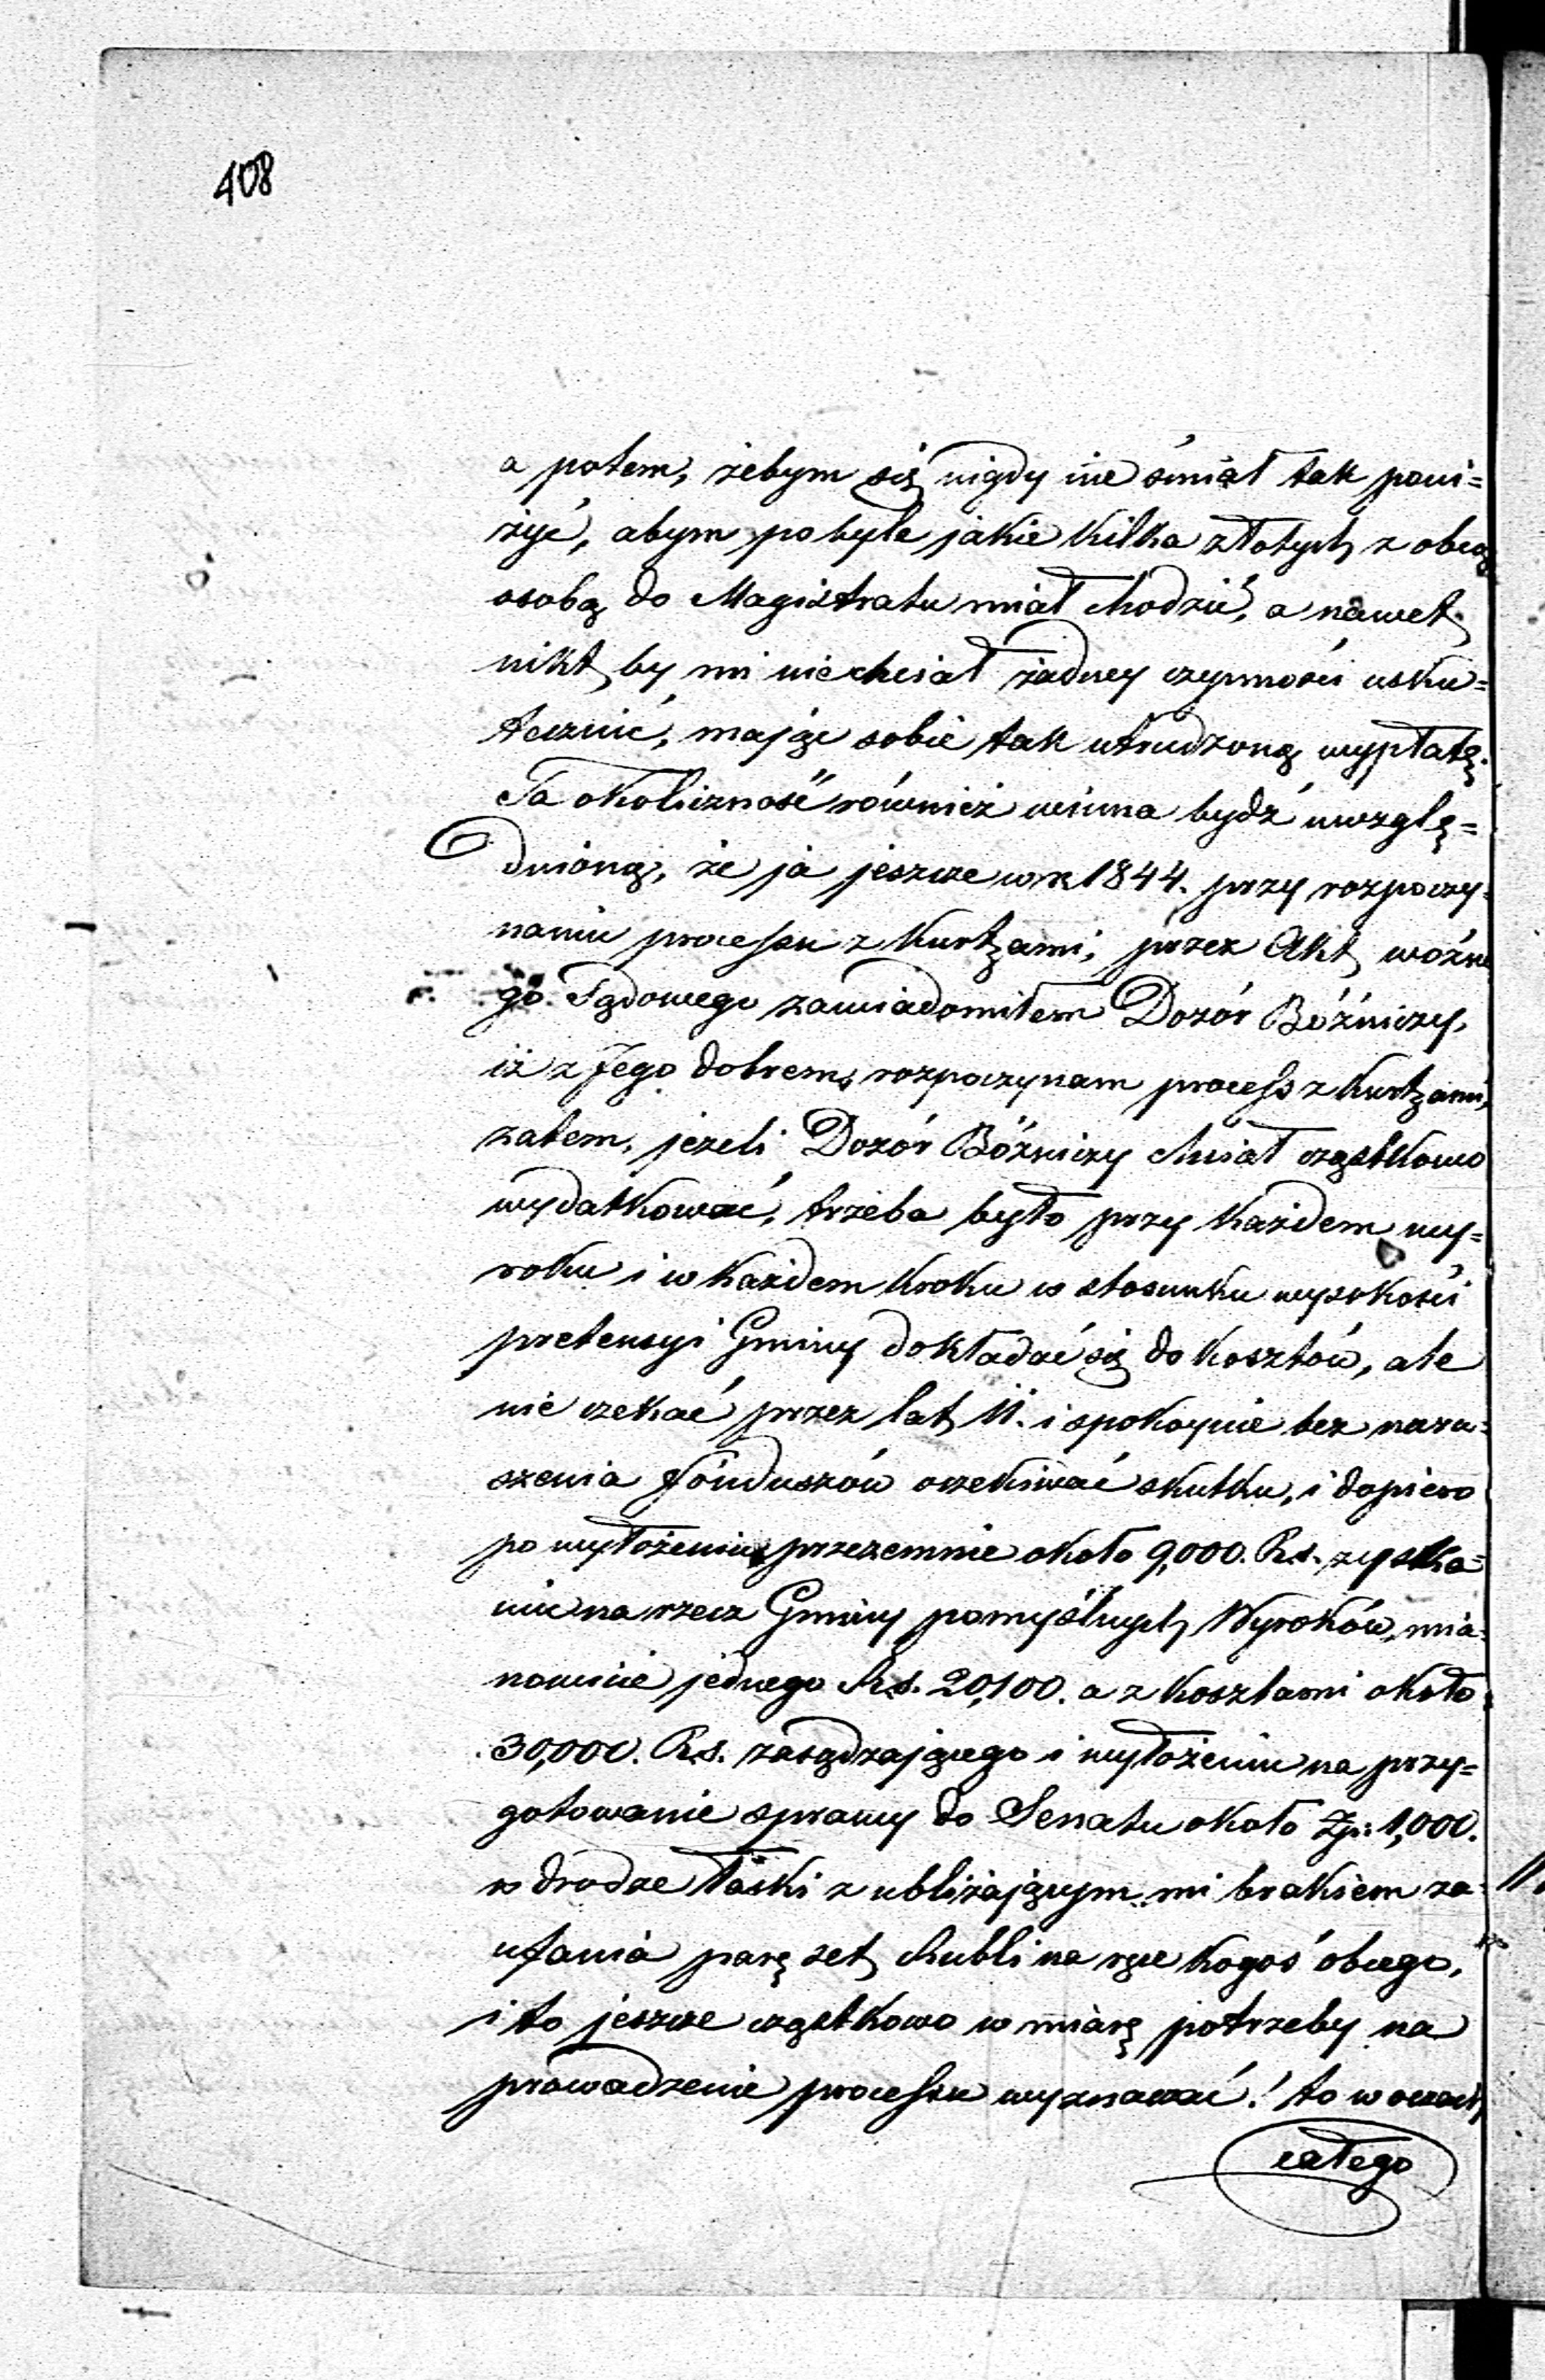 408
a potem, żebym się nigdy nie śmiał tak poni=
żyć, abym po byle jakie kilka złotych z obcą
osobą do Magistratu miał chodzić, a nawet
nikt by mi niechciał żadney czynności usku=
tecznić, mając sobie tak utrudzoną wypłatę.
Ta okoliczność również winna bydź uwzglę=
dnioną, że ja jeszcze w r. 1844. przy rozpoczy=
naniu processu z Kurtzami, przez Akt woźne
go Sądowego zawiadomiłem Dozór Bóźniczy,
iż z Jego dobrem, rozpoczynam process z Kurtzami,
zatem, jeżeli Dozór Bóźniczy chciał cząstkowo
wydatkować, trzeba było przy każdem wy=
roku i w każdem kroku w stosunku wysokości
pretensyi Gminy dokładać się do kosztów, ale
nie czekać przez lat 11. i spokoynie bez naru=
szenia fónduszów oczekiwać skutku, i dopiero
po wyłożeniu przezemnie około 9,000. Rs. zyska=
niu na rzecz Gminy pomyślnych Wyroków, mia=
nowicie jednego Rs. 20,100. a z kosztami około
30,000. Rs. zasądzającego i wyłożeniu na przy=
gotowanie sprawy do Senatu około Zp. 1,000.
w drodze łaski z ubliżającym mi brakiem za=
ufania parę set Rubli na ręce kogoś obcego,
i to jeszcze cząstkowo w miarę potrzeby na
prowadzenie processu wyznawać! to w oczach
całego